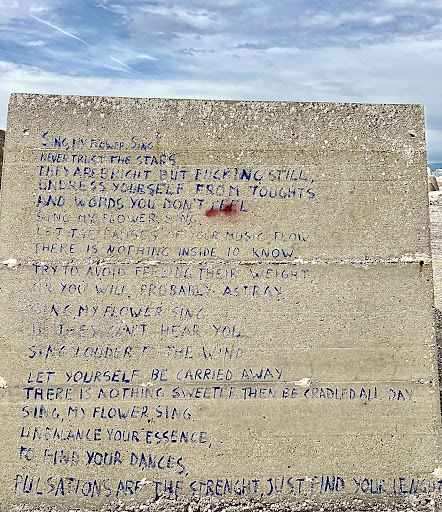 SING, MY FLOWER, SING
NEVER TRUST THE STARS
THEY ARE BRIGHT BUT FUCKING STILL,
UNDRESS YOUESELF FROM TOUGHTS
AND WORDS YOU DON'T FEEL
SING MY FLOWER, SING
LET THE OF YOUR MUSIC FLOW
THERE IS NOTHING INSIDE TO KNOW
TRY TO AVOID FEELING THEIR WEIGHT
OR YOU WILL PROBABLY ASTRAY
SING MY FLOWER SING
IF THEY CAN'T HEAR YOU
SING LOUDER THE WIND
LET YOURSELF BE CARRIED AWAY
THERE IS NOTHING SWEETER THEN BE CRADLED ALL DAY
SING, MY FLOWER, SING.
UNBALANCE YOUR ESSENCE,
TO FIND YOUR DANCES,
PULSATIONS ARE THE STRENGHT, JUST FIND YOUR LENGHT